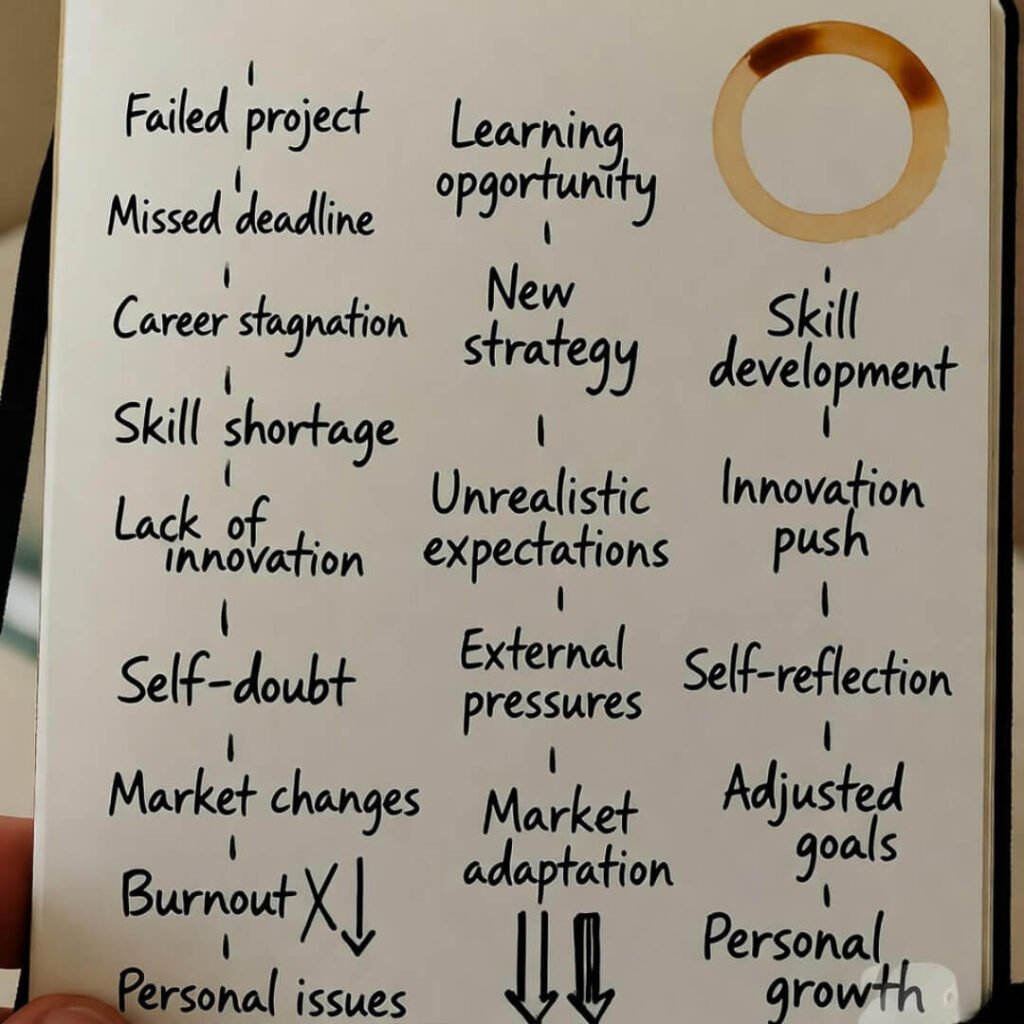 Failed project
Missed deadline
Career stagnation
Skill shortage
Lack of
innovation
Self-doubt
Market changes
Burnout X
Personal issues
Learning
opgortunity
New
strategy
Unrealistic
expectations
External
pressures
Market
adaptation
Skill
development
Innovation
push
Self-reflection
Adjusted
goals
Personal
growth